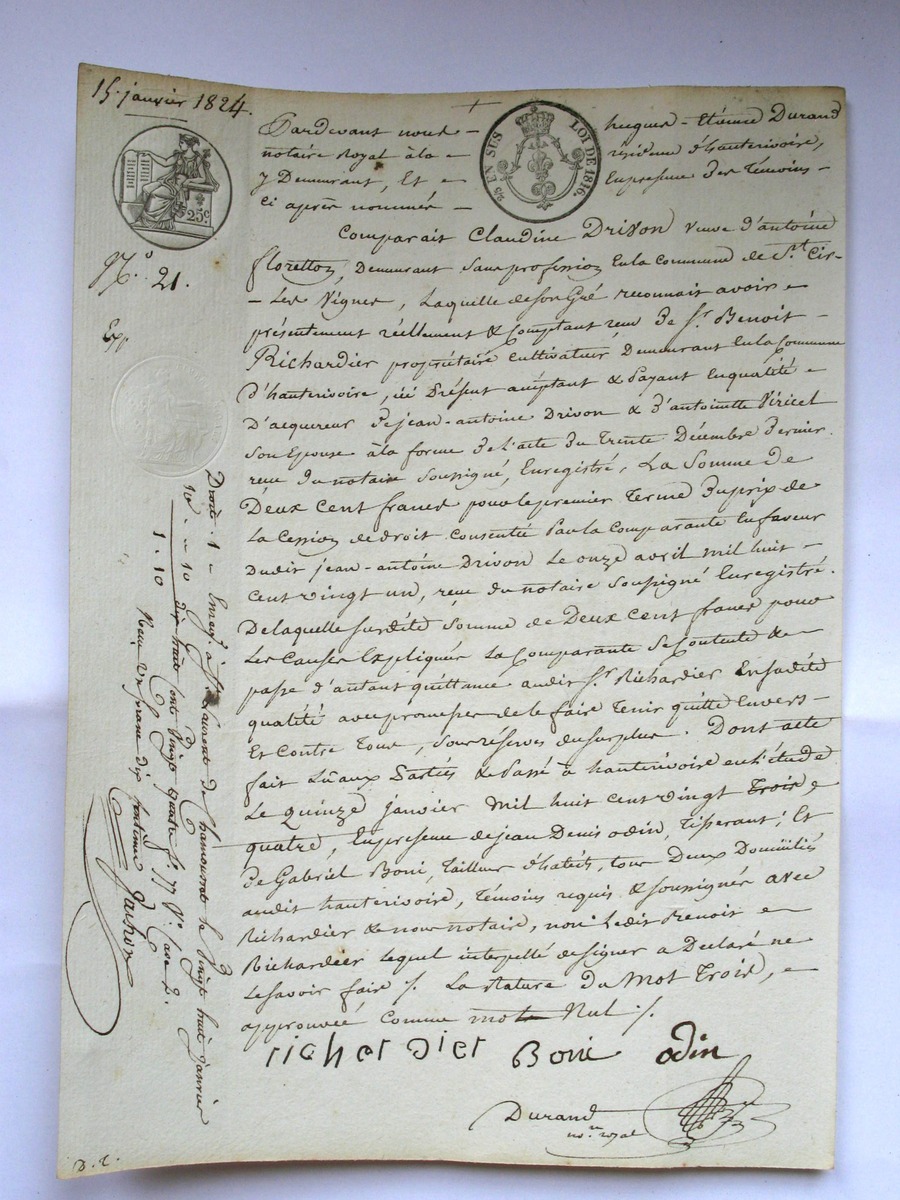 15. janvier 1824.
25 EN SUS LOI DE 1816.
25c
N.o 21.
Exp
Pardevant nous hugues-Etienne Durand
notaire Royal à la résidence d'hauterivoire,
y Demeurant, Et En presence Des Témoins
Ci après nommés
Comparait Claudine Drivon veuve d'antoine
floretton, Demeurant Sans profession En la Commune de St. Cir-
Les Vignes, Laquelle de Son Gré reconnait avoir
présentement réellement & Comptant reçu De Sr. Benoit
Richardier propriétaire Cultivateur Demeurant En la Commune
d'hauterivoire, ici Présent acceptant & Payant En qualité
D'acquereur De jean-antoine Drivon & D'antoinette Viricel
Son Epouse à la forme De l'acte Du Trente Décembre Dernier
reçu Du notaire Soussigné, Enregistré, La Somme de
Deux Cent francs pour le premier Terme Du prix de
La Cession de droit Consentie Par la Comparante En faveur
Dudit jean-antoine Drivon Le onze avril mil huit
Cent vingt un, reçue du notaire Soussigné Enregistré.
De laquelle susdite Somme de Deux Cent francs pour
Les Causes Expliquées La Comparante Se Contente &
passe d'autant quittance audit Sr. Richardier En sadite
qualité avec promesse de le faire Tenir quitte Envers
Et Contre Tous, Sous réserves du surplus. Dont acte
fait Lu aux Parties & Passé à hauterivoire en l'étude
Le quinze janvier mil huit Cent vingt Trois
quatre, En presence de jean Denis odin, Tisserant; Et
De Gabriel Boni, Tailleur d'habits, tous Deux Domiciliés
audit hauterivoire, Témoins requis & soussignés avec
Richardier & nous notaire, non Ledit Benoit
Richardier Lequel interpellé de signer a Declaré ne
Le savoir faire /. La Rature Du Mot Trois,
approuvée Comme mot Nul /.
richerdier Boni odin
Durand
nore. royal
Droit. 1
10. = 10
1. 10
Enregé. à St. Laurent de Chamousset le Vingt huit Janvier
dix huit Cent Vingt quatre fo. 77 Vo. Case 2.
Reçu Un franc dix Centimes
D.C.